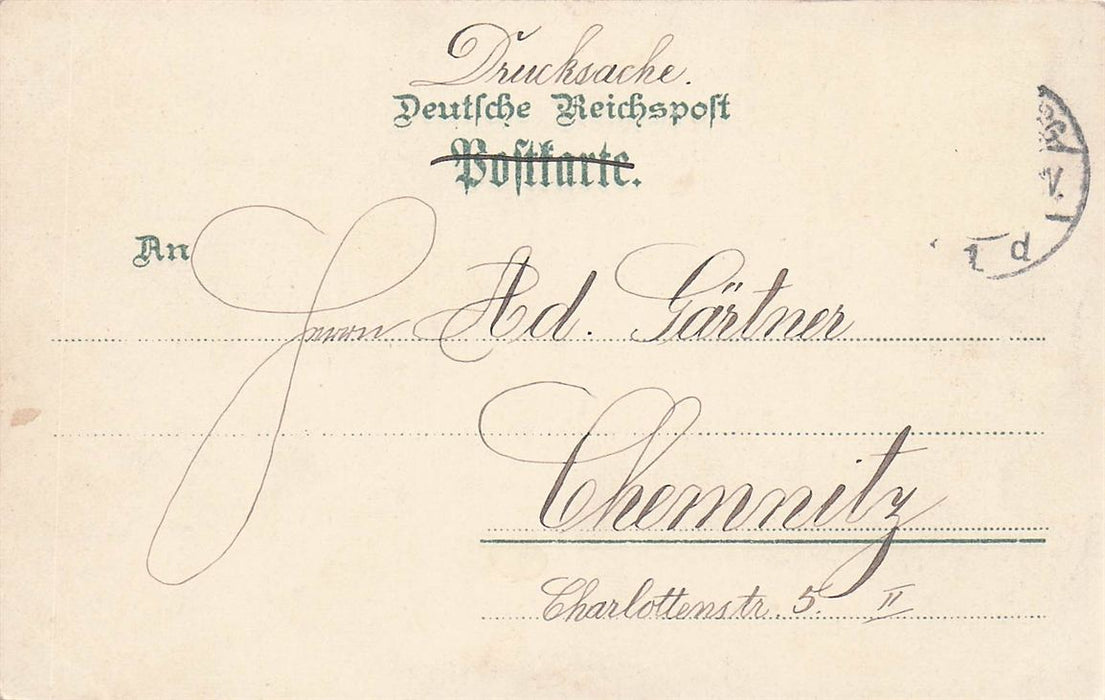 Drucksache.
Deutsche Reichspost
Postkarte.
An
Herrn Ad. Gärtner
Chemnitz
Charlottenstr. 5. II